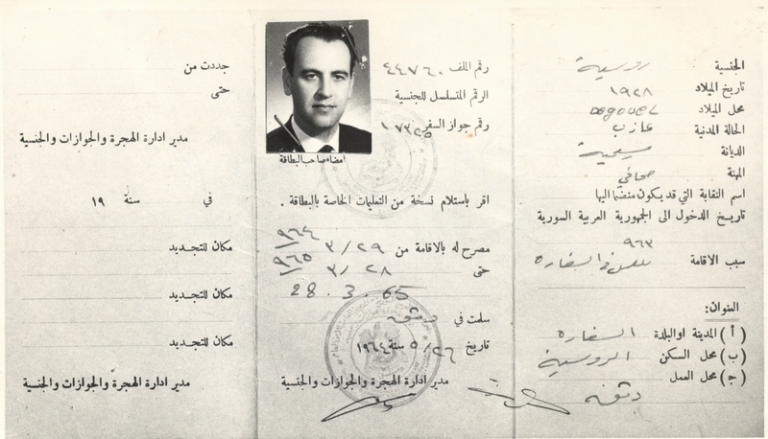 الجنسية روسية
تاريخ الميلاد ١٩٢٨
محل الميلاد
الحالة المدنية عازب
الديانة مسيحية
المهنة صحافي
اسم النقابة التي قد يكون منضما اليها
تاريخ الدخول الى الجمهورية العربية السورية
٩٦٣
سبب الاقامة
العنوان:
( أ ) المدينة او البلدة السفاره
( ب ) محل السكن الروسية
( ج ) محل العمل دمشق
رقم الملف ٤٤٧٦٠
الرقم المتسلسل للجنسية
رقم جواز السفر
امضاء صاحب البطاقة
اقر باستلام نسخة من التعليمات الخاصة بالبطاقة .
مصرح له بالاقامة من ٢٩ / ٣ / ٩٦٤
حتى ٢٨ / ٣ / ٩٦٥
28.3.65
سلمت في دمشق
تاريخ ٢٦ / ٥ سنة ١٩٦٤
مدير ادارة الهجرة والجوازات والجنسية
جددت من
حتى
مدير ادارة الهجرة والجوازات والجنسية
في سنة ١٩
مكان للتجديد
مكان للتجديد
مكان للتجديد
مدير ادارة الهجرة والجوازات والجنسية